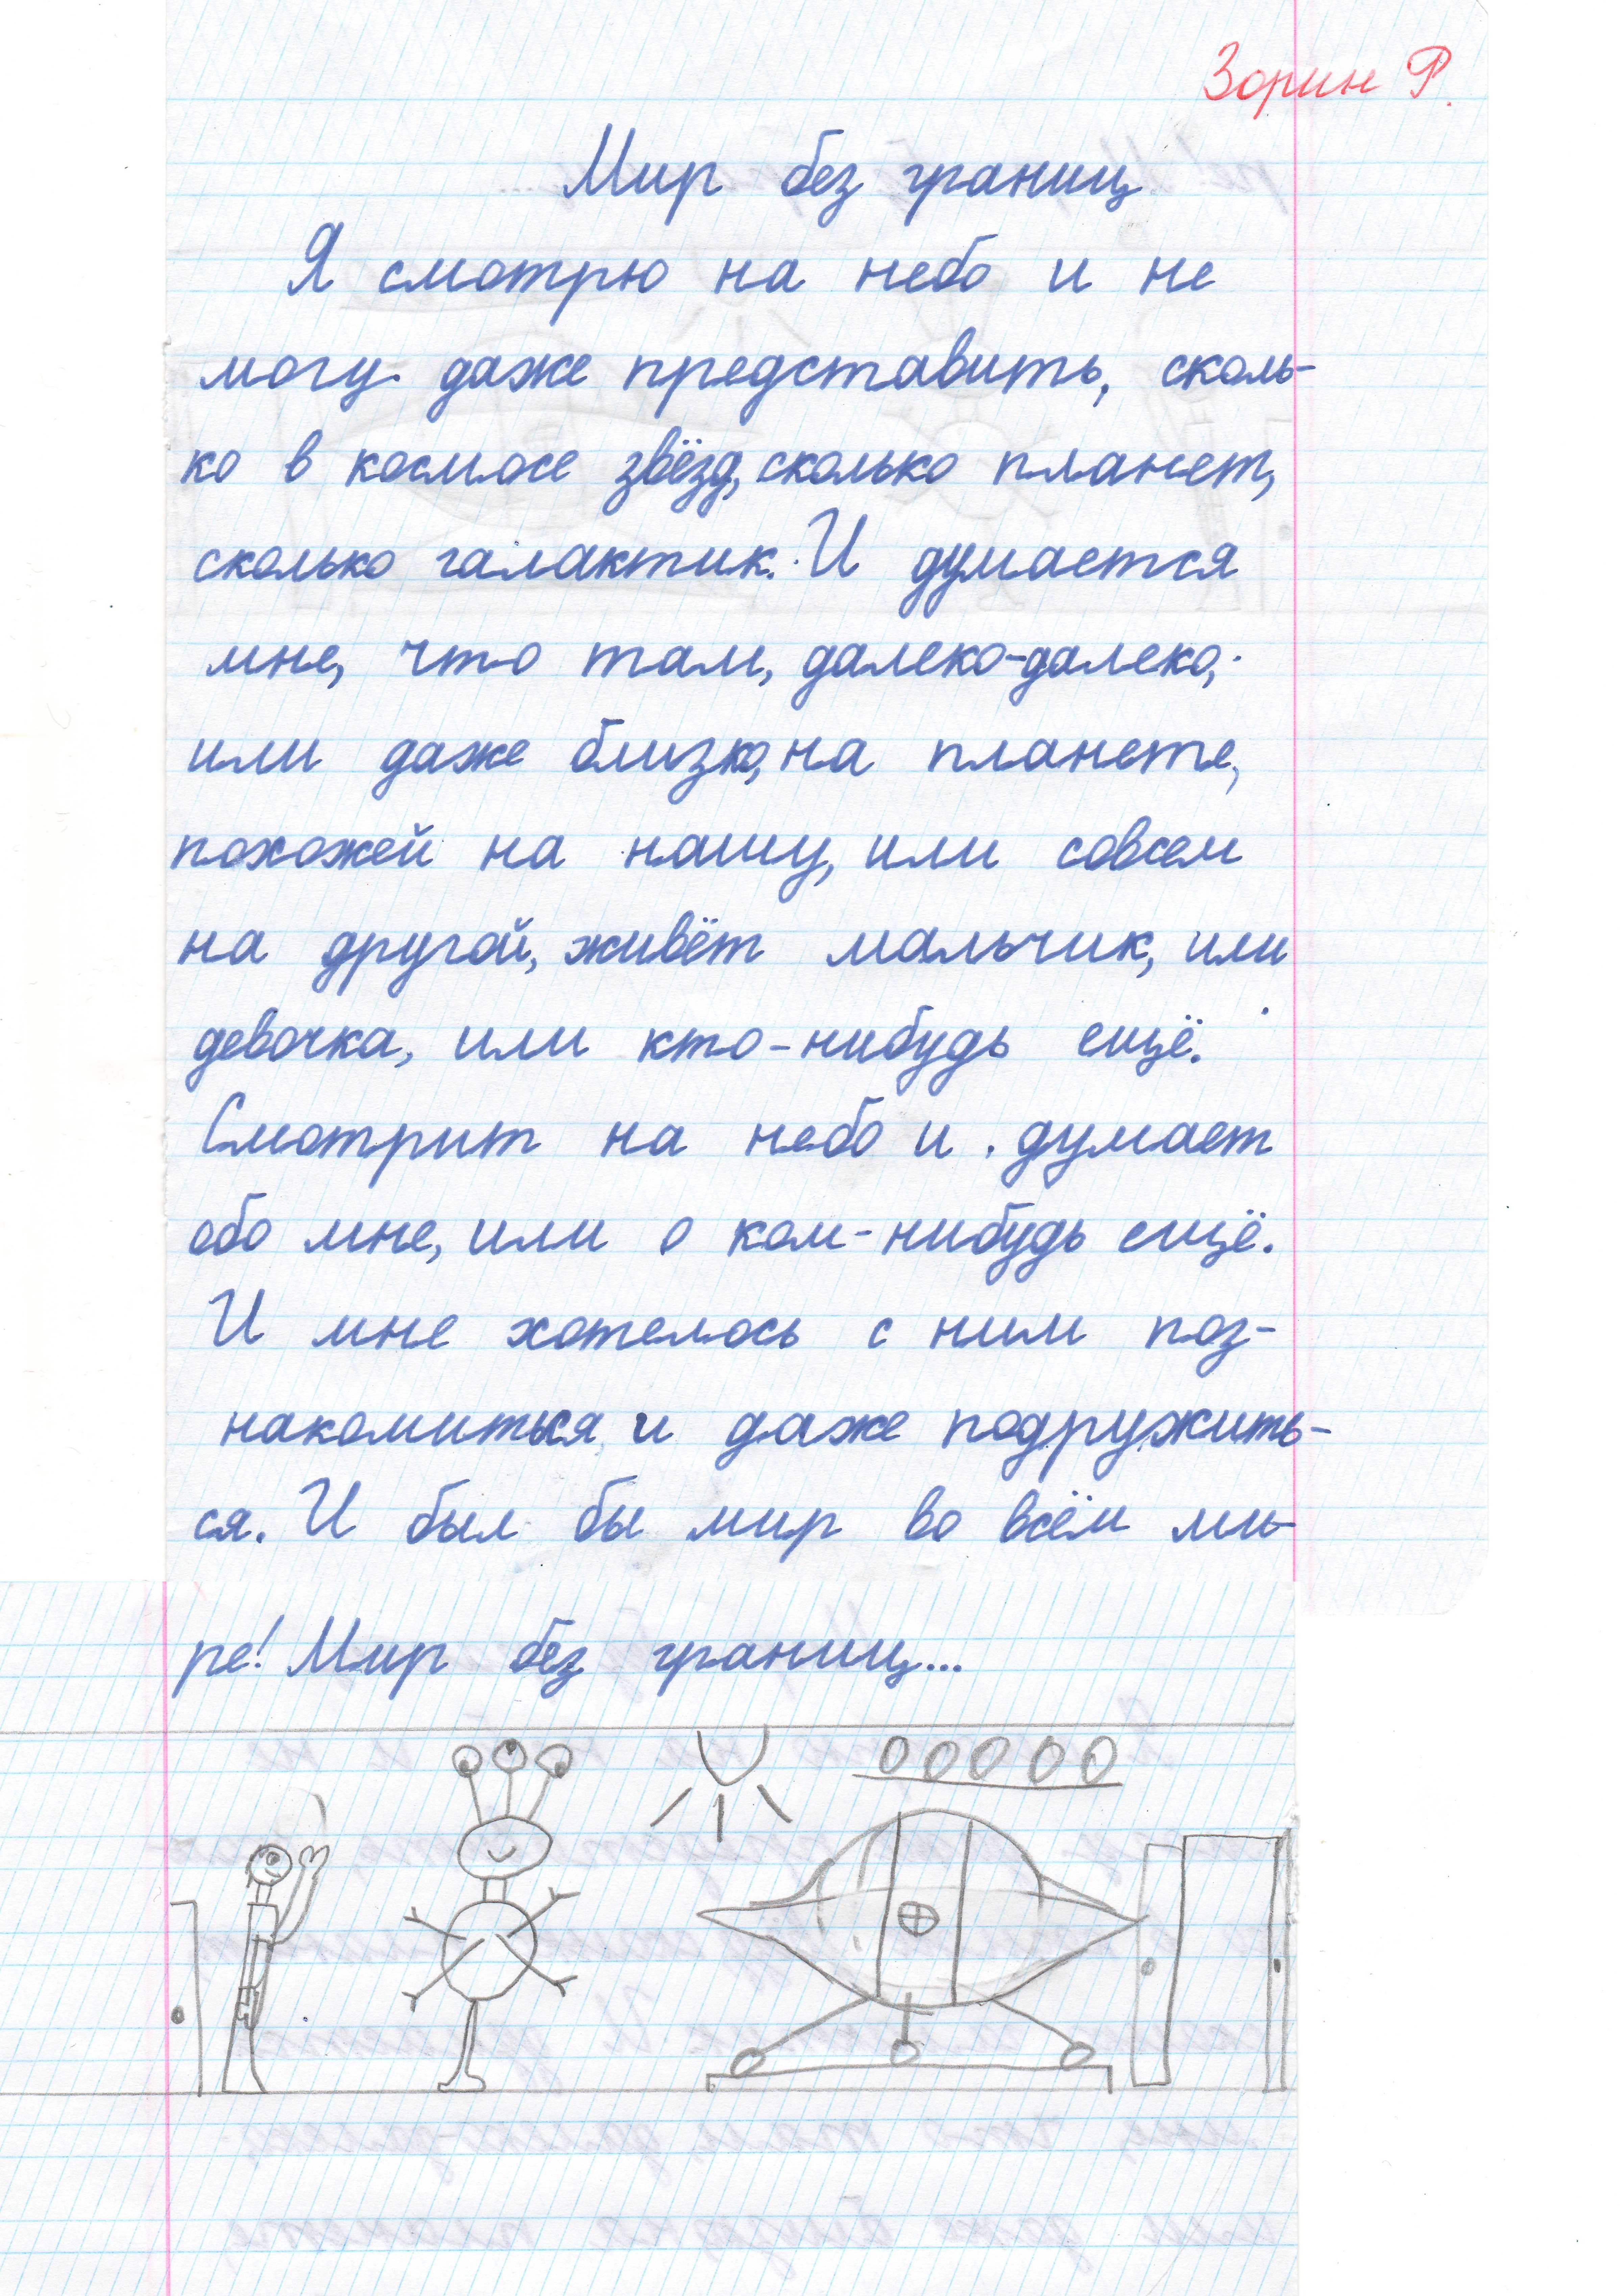 Зорин Р.
Мир без границ
Я смотрю на небо и не
могу даже представить, сколь-
ко в космосе звёзд, сколько планет,
сколько галактик. И думается
мне, что там, далеко-далеко,
или даже близко, на планете,
похожей на нашу, или совсем
на другой, живёт мальчик, или
девочка, или кто-нибудь ещё.
Смотрит на небо и думает
обо мне, или о ком-нибудь ещё.
И мне хотелось с ним поз-
накомиться и даже подружить-
ся. И был бы мир во всём ми-
ре! Мир без границ...